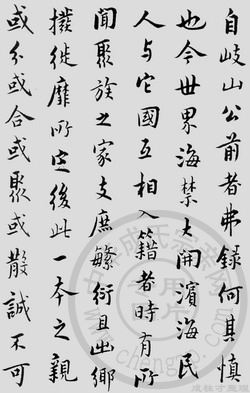 自岐山公前者弗録何其慎
也今世界海禁大開濱海民
人与它國互相入籍者時有所
聞聚族之家支庶繁衍且出鄉
擴徙靡所定後此一本之親
或分或合或聚或散誠不可